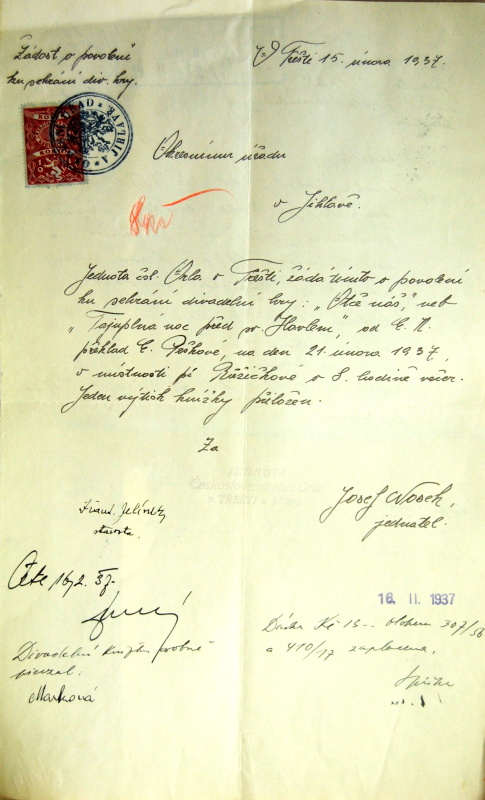 Žádost o povolení
ku sehrání div. hry.
V Třešti 15. února 1937.
Okresnímu úřadu
v Jihlavě.
Jednota čsl. Orla v Třešti, žádá tímto o povolení
ku sehrání divadelní hry: „Otče náš", neb
„Tajuplná noc před sv. Havlem", od E. N.
překlad E. Peškové, na den 21. února 1937,
v místnosti pí Růžičkové o 8. hodině večer.
Jeden výtisk knížky přiložen.
Za
JEDNOTA
Československého Orla
v TŘEŠTI
Frant. Jelínek
starosta.
Josef Nosek,
jednatel.
16/2. 37
16. II. 1937
Dávka Kč 15.-- 307/36
a 410/17 zaplacena.
Divadelní knížku
převzal.
Marková